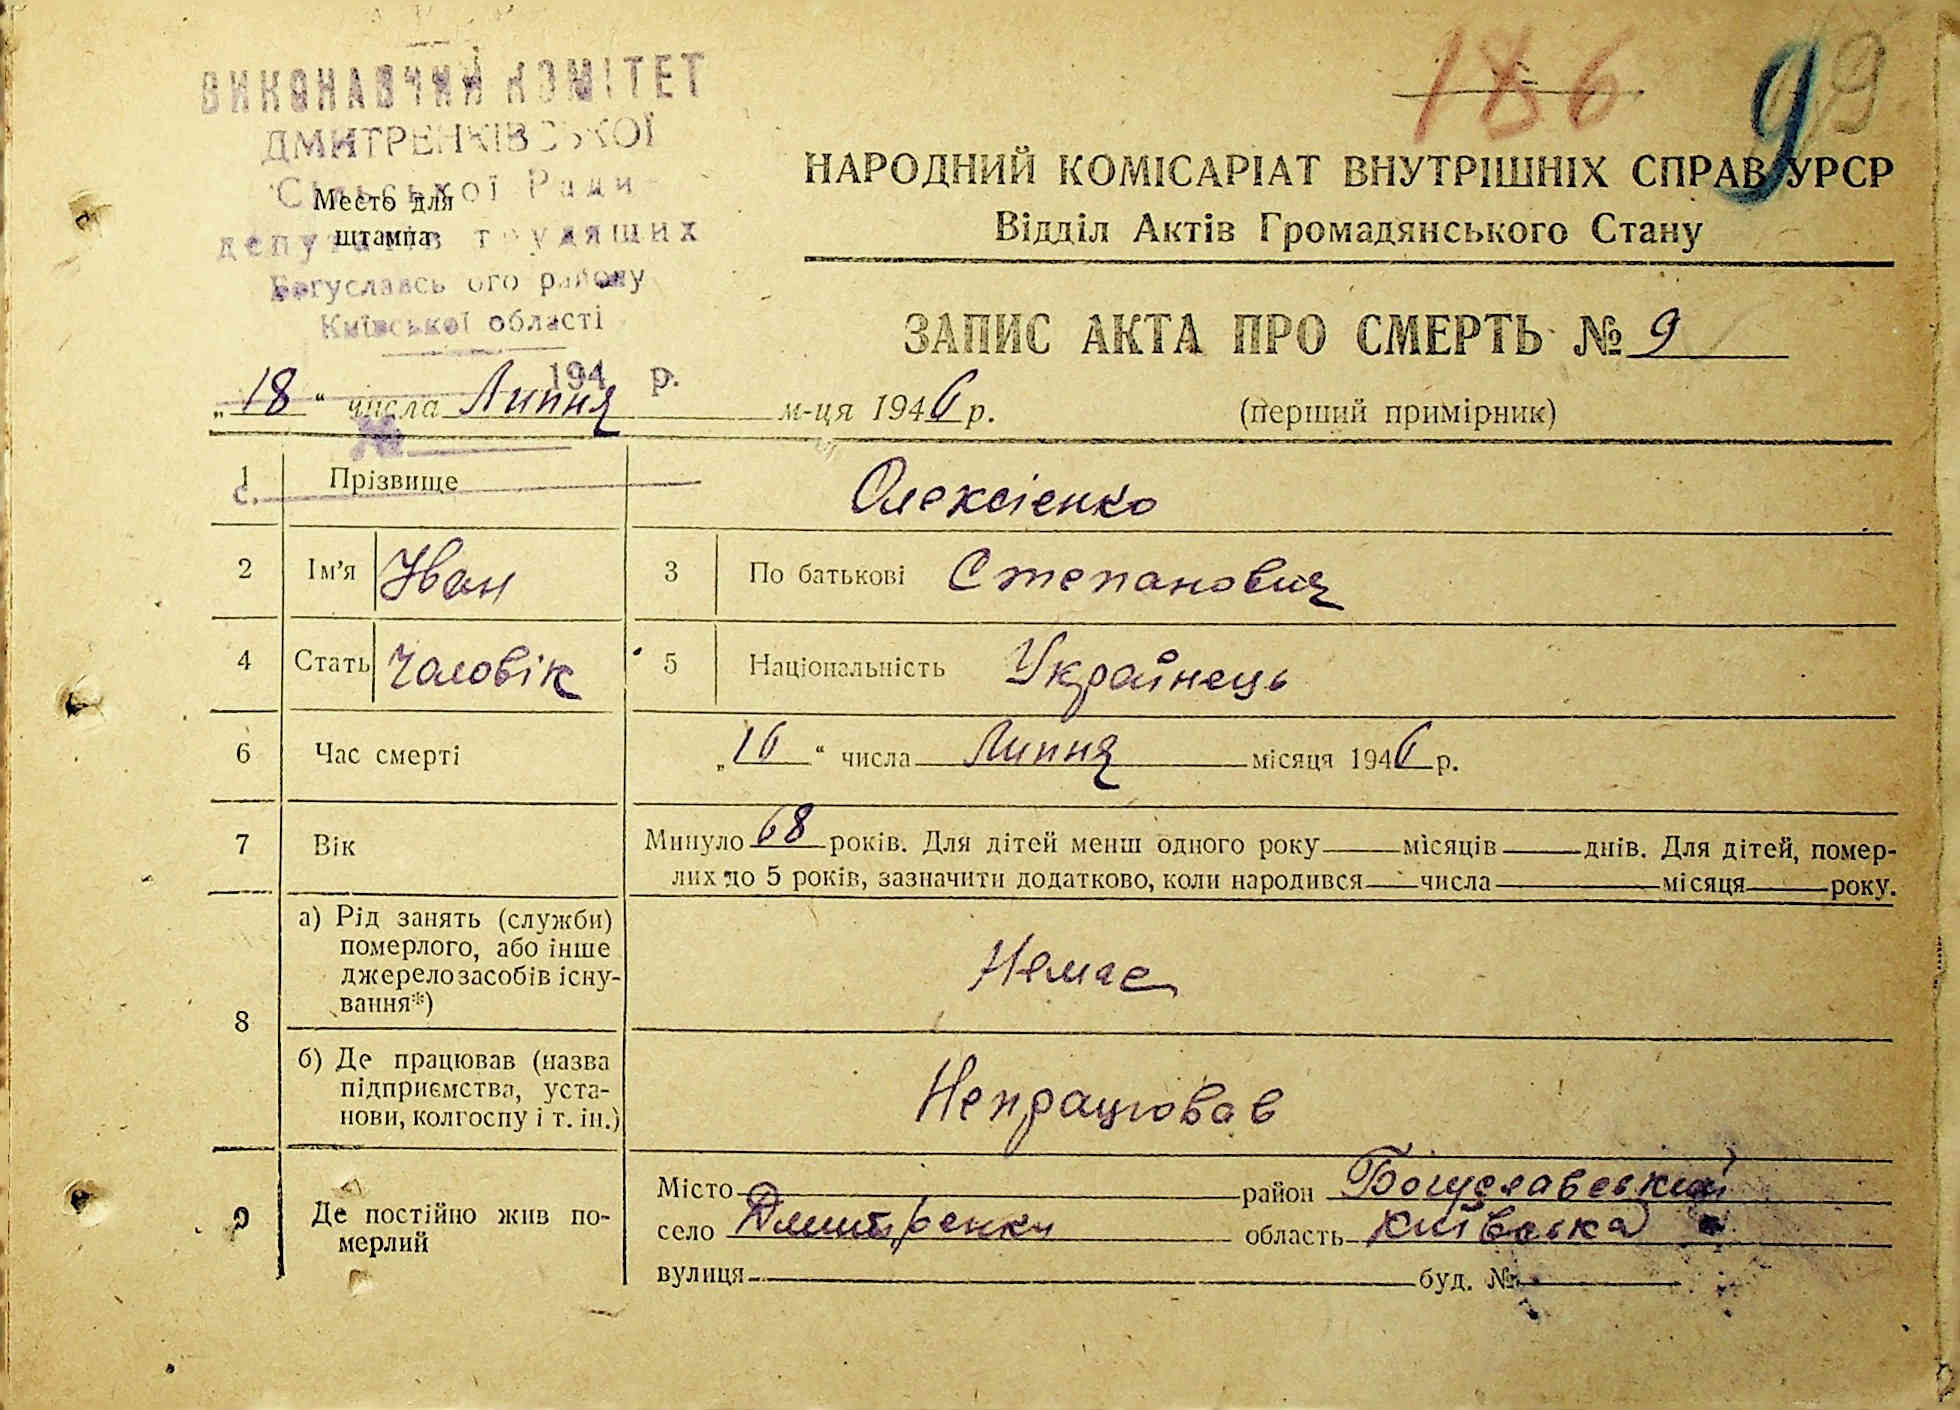 186 99
9
ВИКОНАВЧИЙ КОМІТЕТ
ДМИТРЕНКІВСЬКОЇ
Сільської Ради
депутатів трудящих
Богуславського району
Київської області
194 р.
№
с.
Место для
штампа
НАРОДНИЙ КОМІСАРІАТ ВНУТРІШНІХ СПРАВ УРСР
Відділ Актів Громадянського Стану
ЗАПИС АКТА ПРО СМЕРТЬ № 9
„18“ числа Липня м-ця 1946 р.
(перший примірник)
1 Прізвище Олексієнко
2 Ім’я Іван 3 По батькові Степанович
4 Стать Чоловік 5 Національність Українець
6 Час смерті „16“ числа Липня місяця 1946 р.
7 Вік Минуло 68 років. Для дітей менш одного року місяців днів. Для дітей, помер-
лих до 5 років, зазначити додатково, коли народився числа місяця року.
8
а) Рід занять (служби)
померлого, або інше
джерело засобів існу-
вання*)
Немає
б) Де працював (назва
підприємства, уста-
нови, колгоспу і т. ін.)
Непрацював
9 Де постійно жив по-
мерлий
Місто район Богуславський
село Дмитренки область Київська
вулиця буд. №